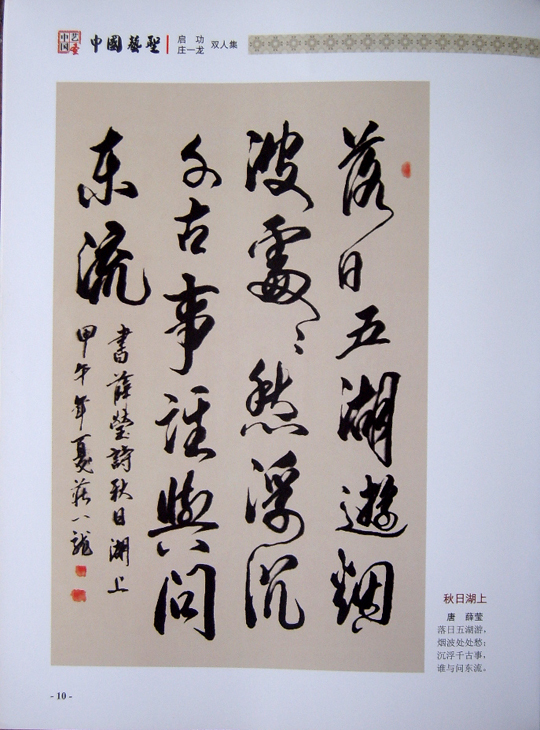 中国艺圣
中國藝聖
启功
庄一龙
双人集
落日五湖遊烟
波處〻愁浮沉
千古事誰與問
东流
書薛瑩詩秋日湖上
甲午年夏莊八龍
秋日湖上
唐 薛莹
落日五湖游，
烟波处处愁；
沉浮千古事，
谁与问东流。
- 10 -